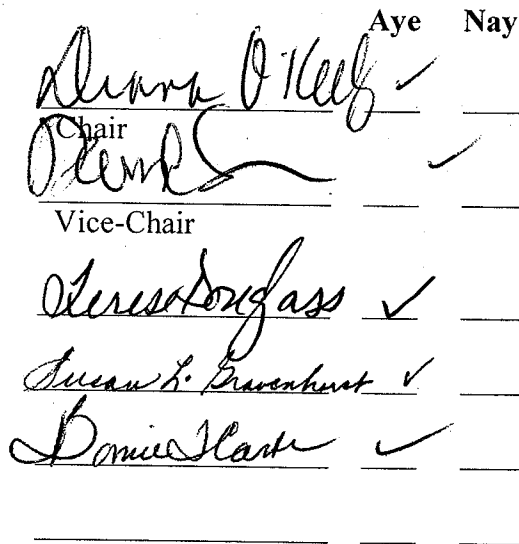 Aye Nay
Diana O'Keefe ✓
Chair
✓
Vice-Chair
Teresa Douglass ✓
Susan L. Gravenhorst ✓
Bonnie ✓